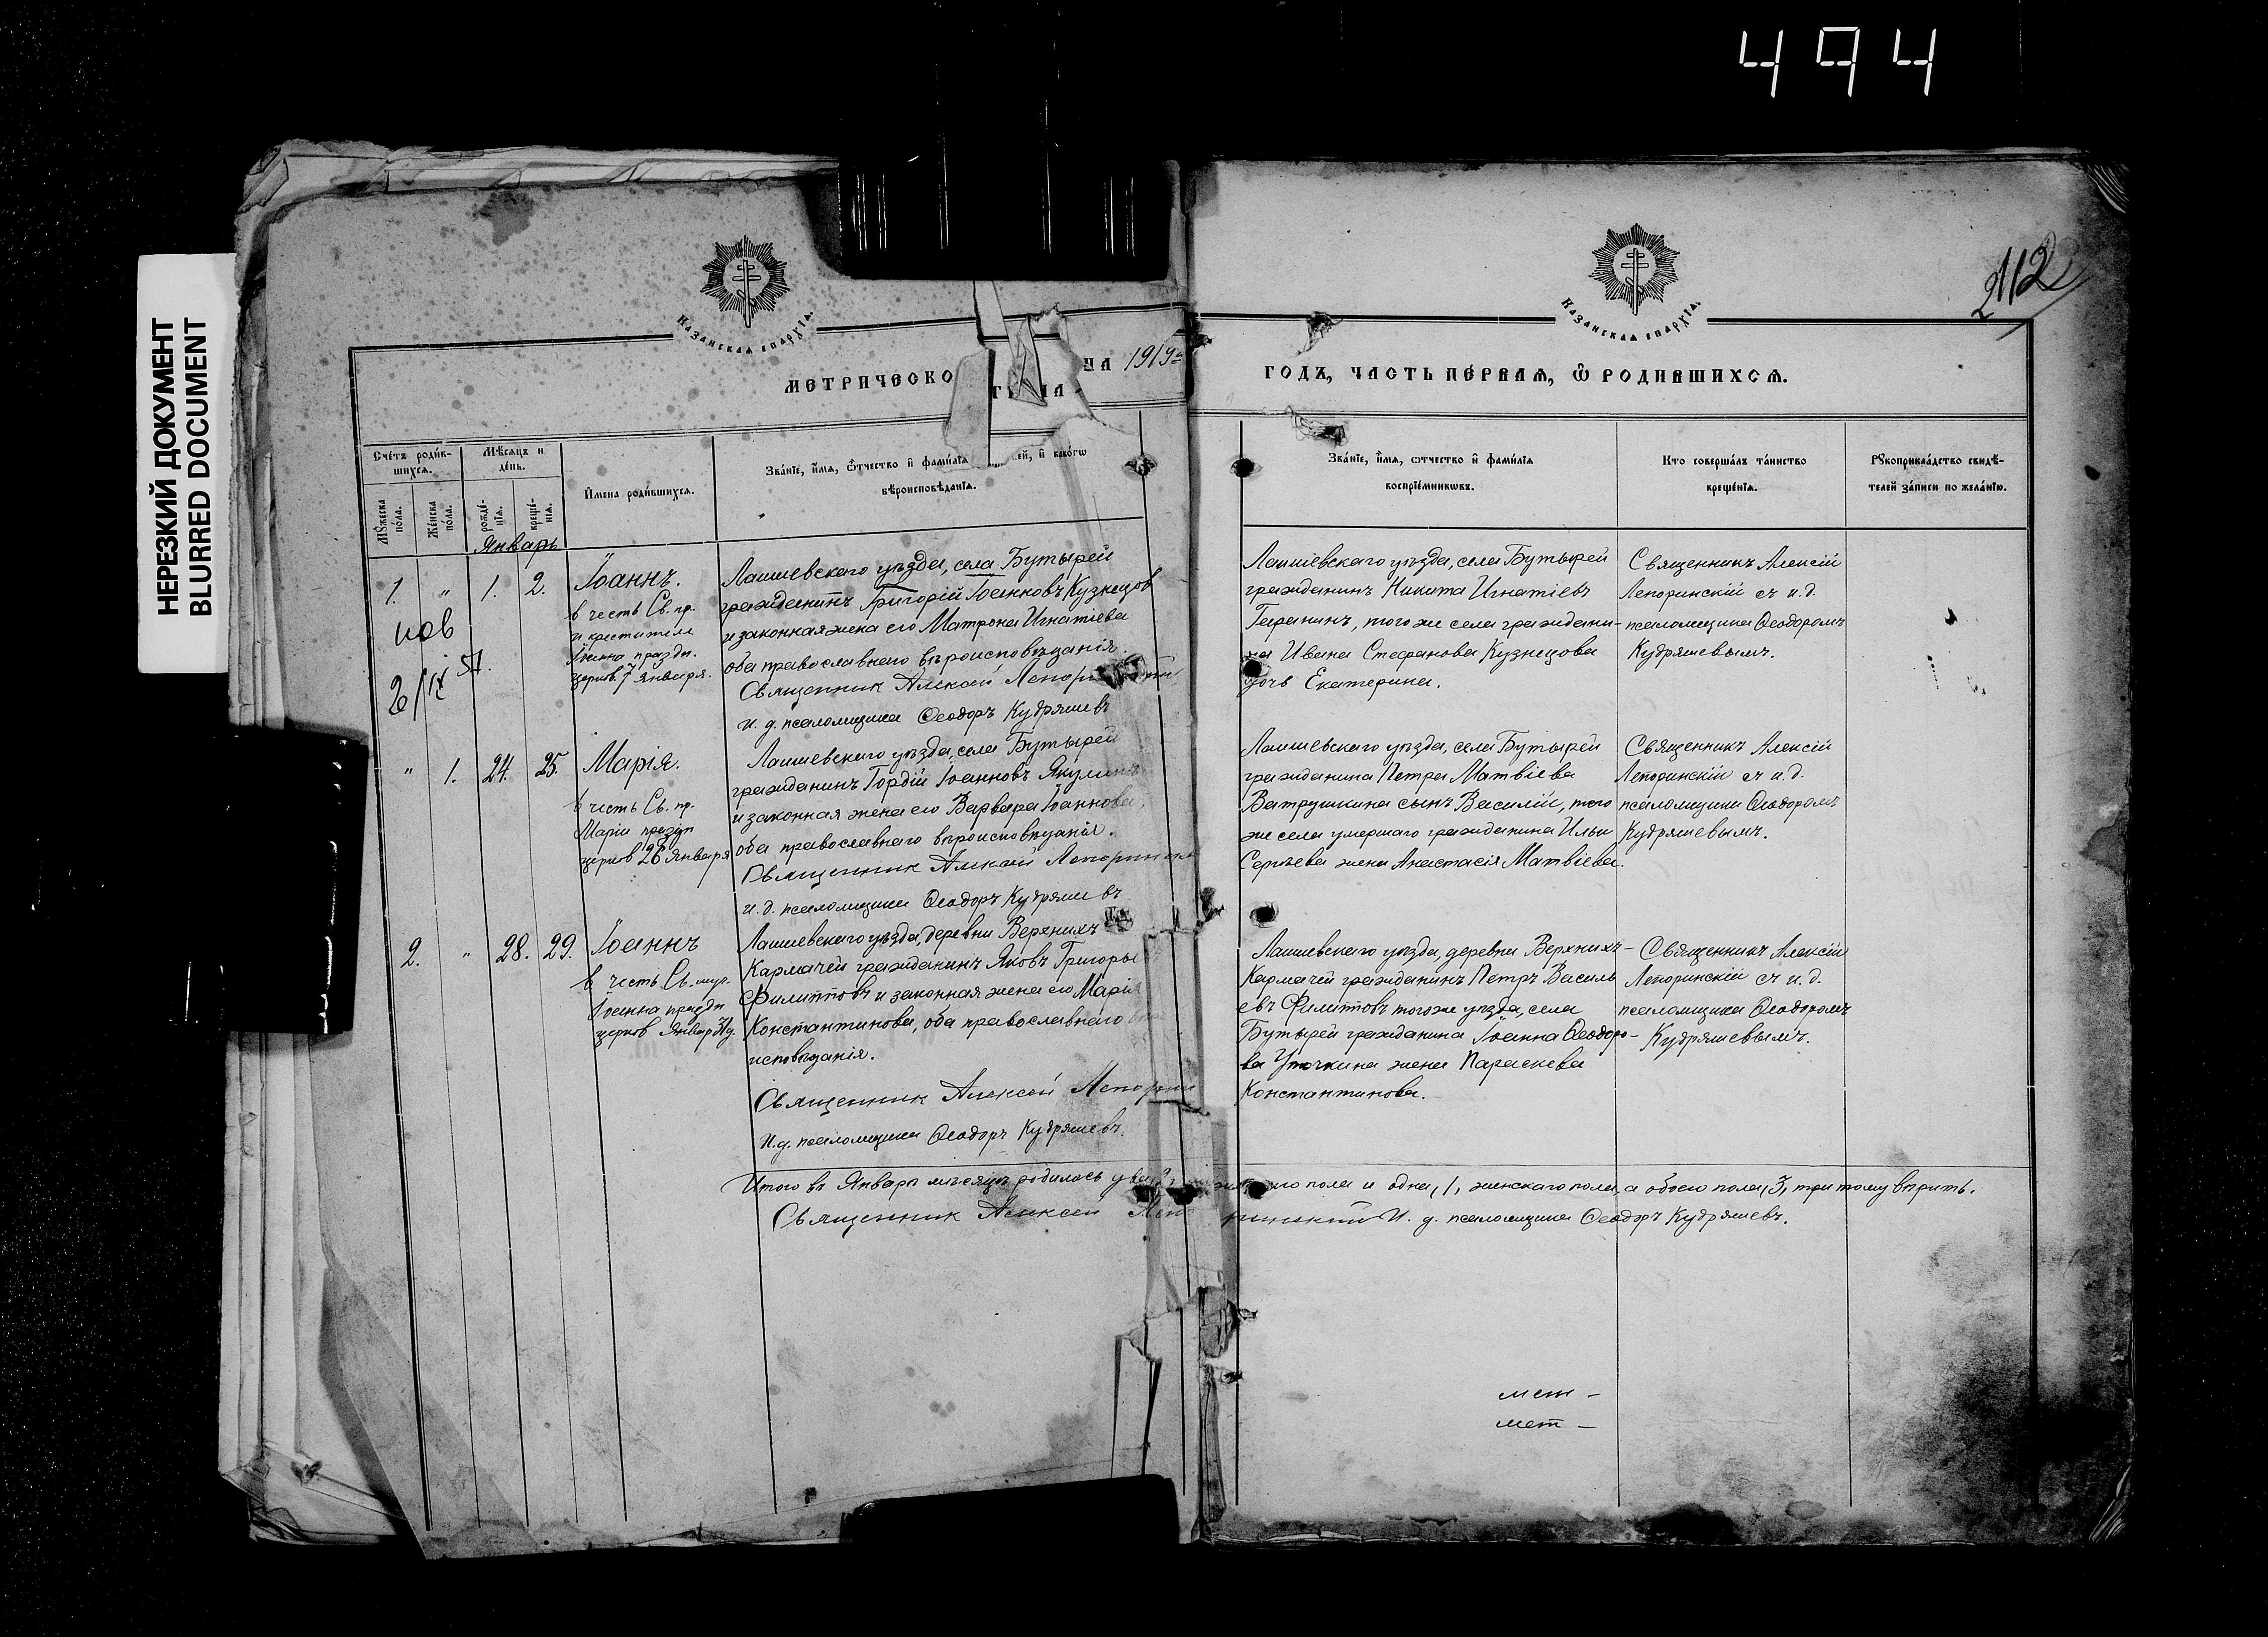 494
НЕРЕЗКИЙ ДОКУМЕНТ
BLURRED DOCUMENT
КАЗАНСКАѦ ЕПАРХІА.
КАЗАНСКАѦ ЕПАРХІА.
212
МЕТРИЧЕСКО НА 1919й
ГОДЪ, ЧАСТЬ ПЕРВАѦ, Ѽ РОДИВШИХСѦ.
Счетъ родив-
шихсѧ.
Мꙋжеска
пола.
Женска
пола.
Мѣсѧцъ и
день.
рожде-
нїѧ.
креще-
нїѧ.
Имена родившихсѧ.
Званїе, имѧ, ѿчество и фамилїѧ ей, и какогѡ
вѣроисповѣданїѧ.
Званїе, имѧ, ѿчество и фамилїѧ
воспрїемникѡвъ.
Кто совершалъ таинство
крещенїѧ.
Рꙋкоприкладство свидѣ-
телей записи по желанїю.
Январь
1. „ 1. 2.
нов
2/IX 57.
Іоаннъ.
в честь Св. пр.
и крестителя
Іоанна праздн.
церков. 7 января.
Лаишевскаго уѣзда, села Бутырей
гражданинъ Григорій Іоанновъ Кузнецов
и законная жена его Матрона Игнатіева
оба православнаго вѣроисповѣданія.
Священник Алексей
и. д. псаломщика Ѳеодоръ Кудряшевъ
Лаишевскаго уѣзда, села Бутырей
гражданинъ Никита Игнатіевъ
Гаранинъ, того же села граждани-
на Ивана Стефанова Кузнецова
дочь Екатерина.
Священникъ Алексій
Лепоринскій съ и. д.
псаломщика Ѳеодоромъ
Кудряшевымъ.
„ 1. 24. 25.
Марія.
в честь Св. пр.
Маріи праздн
церков 26 Января
Лаишевскаго уѣзда, села Бутырей
гражданинъ Гордій Іоанновъ
и законная жена его Варвара Іоаннова,
оба православнаго вѣроисповѣданія.
Священник Алексей
и. д. псаломщика Ѳеодоръ Кудряшевъ
Лаишевскаго уѣзда, села Бутырей
гражданина Петра Матвіева
Ватрушкина сынъ Василій, того
же села умершаго гражданина Ильи
Сергѣева жена Анастасія Матвіева.
Священникъ Алексій
Лепоринскій съ и. д.
псаломщика Ѳеодоромъ
Кудряшевымъ.
2. „ 28. 29.
Іоаннъ
в честь Св.
Іоанна праздн
церков Января
Лаишевскаго уѣзда, деревни Верхнихъ
Кармачей гражданинъ Яковъ Григорье
Филипповъ и законная жена его Марія
Константинова, оба православнаго
исповѣданія.
Священник Алексей Лепорин
И. д. псаломщика Ѳеодоръ Кудряшевъ.
Лаишевскаго уѣзда, деревни Верхнихъ-
Кармачей гражданинъ Петръ Василь
евъ Филипповъ того же уѣзда, села
Бутырей гражданина Іоанна Ѳеодоро-
ва Уточкина жена Параскева
Константинова.
Священникъ Алексій
Лепоринскій съ и. д.
псаломщика Ѳеодоромъ
Кудряшевымъ.
Итого въ Январѣ мѣсяцѣ родилось два скаго пола и одна, 1, женскаго пола, а обоего пола, 3, три тому вѣрить.
Священник Алексей Леп ринский И. д. псаломщика Ѳеодоръ Кудряшевъ.